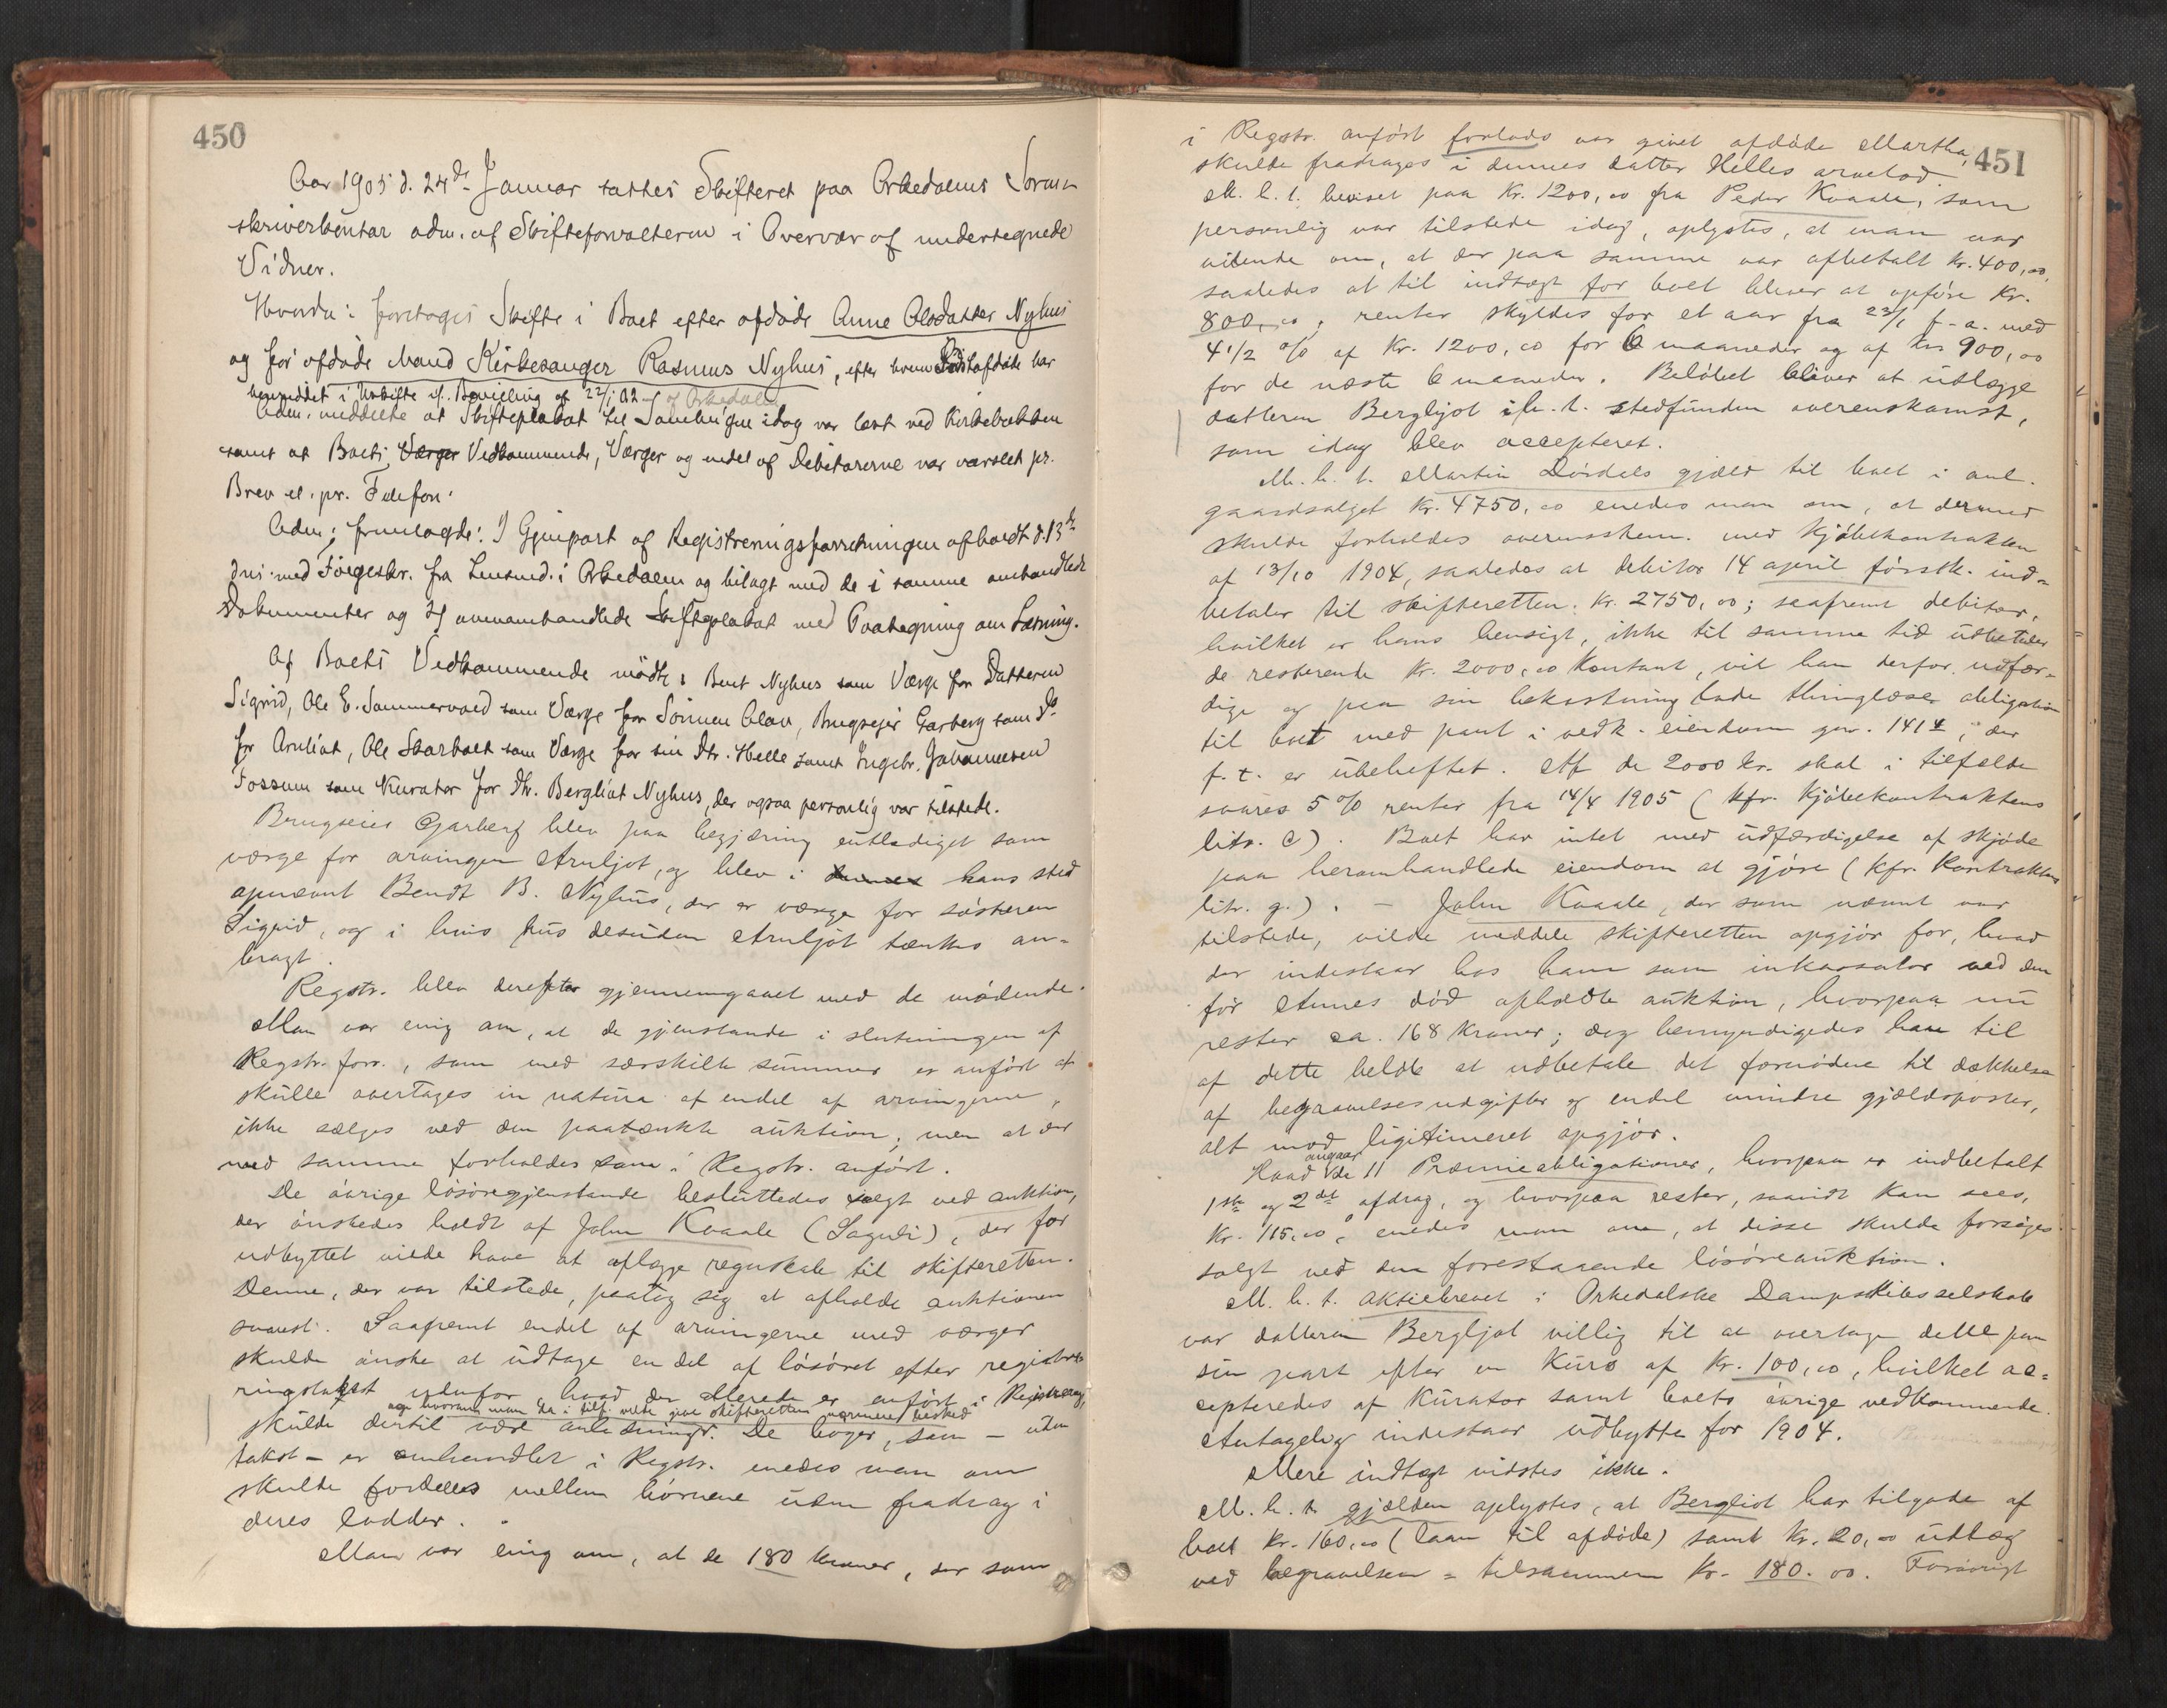 450
Aar 1905 d. 24de Januar sattes Skifteret paa Orkedalens Soren-
skriverkontor adm. af Skifteforvalteren i Overvær af undertegnede
Vidner.
Hvorda: foretoges Skifte i Boet efter afdøde Anne Olsdatter Nyhus
og før afdøde Mand Kirkesanger Rasmus Nyhus, efter hvem Sidstafdøde har
hensiddet i Uskifte if. Bevilling af 22/1 02
Adm. meddelte at Skifteplakat til Samling idag var læst ved Kirkebakken
samt at Boets Værger Vedkommende, Værger og endel af Debitorerne var varslet pr.
Brev el. pr. Telefon.
Adm. fremlagde: I Gjenpart af Registreringsforretningen afholdt d. 13de
ds. med Følgeskr. fra Lensmd. i Orkedalen og bilagt med de i samme omhandlede
Dokumenter og II ovenomhandlede Skifteplakat med Paategning om Læsning.
Af Boets Vedkommende mødte: Bent Nyhus som Værge for Datteren
Sigrid, Ole E. Sommervold som Værge for Sønnen Olav, Brugseier Garberg som Do
for Arnliot, Ole Skarholt som Værge for sin Dtr. Helle samt Ingebr. Johannesen
Fossum som Kurator for Dtr. Bergliot Nyhus, der ogsaa personlig var tilstede.
Brugseier Garberg blev paa begjæring entlediget som
værge for arvingen Arnljot, og blev i hans sted
opnævnt Bendt B. Nyhus, der er værge for søsteren
Sigrid, og i hvis hus desuden Arnljot tænkes an-
bragt.
Regstr. blev derefter gjennemgaaet med de mødende.
Man var enig om, at de gjenstande i slutningen af
Regstr. forr., som med særskilte summer er anført at
skulle overtages in natura af endel af arvingerne,
ikke sælges ved den paatænkte auktion, men at der
med samme forholdes som i Regstr. anført.
De øvrige løsøregjenstande besluttedes solgt ved auktion,
der ønskedes holdt af John Kvaale (Sagwli), der for
udbyttet vilde have at aflægge regnskab til skifteretten.
Denne, der var tilstede, paatog sig at afholde auktionen
snarest. Saafremt endel af arvingerne med værger
skulde ønske at udtage en del af løsøret efter registre-
ringstakst udenfor, hvad der allerede er anført i Registrering,
og hvorom man da i tilf. vilde give skifteretten nærmere besked
skulde dertil være anledning. De bøger, som – uden
takst – er omhandlet i Regstr. enedes man om
skulde fordeles mellem børnene uden fradrag i
deres lodder.
Man var enig om, at de 180 kroner, der som
451
i Regstr. anført forlods var givet afdøde Martha,
skulde fradrages i dennes datter Helles arvelod.
M. h. t. beviset paa Kr. 1200,00 fra Peder Kvaale, som
personlig var tilstede idag, oplystes, at man var
vidende om, at der paa samme var afbetalt Kr. 400,00,
saaledes at til indtægt for boet bliver at opføre Kr.
800,00; renter skyldes for et aar fra 23/1 f. a. med
4 1/2 % af Kr. 1200,00 for 6 maaneder og af Kr 900,00
for de næste 6 maaneder. Beløbet bliver at udlægge
datteren Bergljot ifh. t. stedfunden overenskomst,
som idag blev accepteret.
M. h. t. Martin Dørdals gjæld til boet i anl.
gaardsalget Kr. 4750,00 enedes man om, at dermed
skulde forholdes overensstem. med Kjøbekontrakten
af 13/10 1904, saaledes at debitor 14 april førstk. ind-
betaler til skifteretten Kr. 2750,00; saafremt debitor,
hvilket er hans hensigt, ikke til samme tid udbetaler
de resterende Kr. 2000,00 Kontant, vil han derfor udfær-
dige og paa sin bekostning lade thinglæse obligation
til boet med pant i vedk. eiendom gnr. 141 4, der
f. t. er ubeheftet. Af de 2000 kr. skal i tilfælde
svares 5 % renter fra 14/4 1905 (kfr. Kjøbekontraktens
litr. c). Boet har intet med udfærdigelse af skjøde
paa heromhandlede eiendom at gjøre (kfr. Kontraktens
litr. g.). – John Kvaale, der som nævnt var
tilstede, vilde meddele skifteretten opgjør for, hvad
der indestaar hos ham som inkassator ved den
før Annes død afholdte auktion, hvorpaa nu
rester ca. 168 Kroner; dog bemyndigedes han til
af dette beløb at udbetale det fornødne til dækkelse
af begravelsesudgifter og endel mindre gjældsposter,
alt mod ligitimeret opgjør.
Hvad angaar de 11 Præmieobligationer, hvorpaa er indbetalt
1ste og 2det afdrag, og hvorpaa rester, saavidt kan sees,
Kr. 115,00, enedes man om, at disse skulde forsøges
solgt ved den forestaaende løsøreauktion.
M. h. t. aktiebrevet i Orkedalske Dampskibsselskab
var datteren Bergljot villig til at overtage dette paa
sin part efter en Kurs af Kr. 100,00, hvilket ac-
cepteredes af Kurator samt boets øvrige vedkommende.
Antagelig indestaar udbytte for 1904.
Mere indtægt vidstes ikke.
M. h. t. gjælden oplystes, at Bergliot har tilgode af
boet Kr. 160,00 (laan til afdøde) samt Kr. 20,00 udlæg
ved begravelsen = tilsammen Kr. 180.00. Forøvrigt